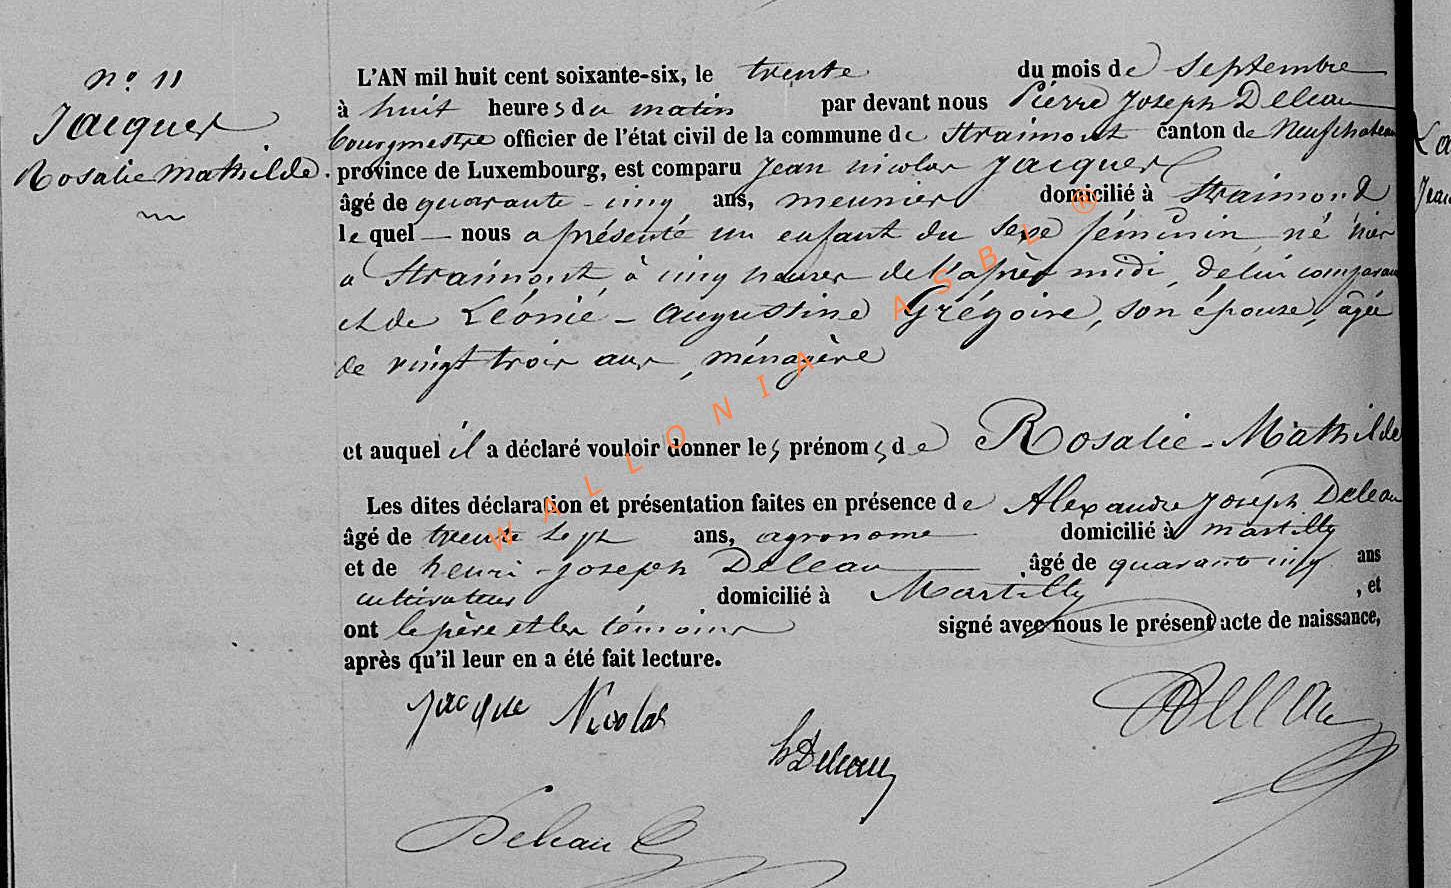 n° 11
Jacques
Rosalie Mathilde.
L'AN mil huit cent soixante-six, le trente du mois de Septembre
à huit heures du matin par devant nous Pierre Joseph Deleau
bourgmestre officier de l'état civil de la commune de Straimont canton de Neufchateau
province de Luxembourg, est comparu Jean Nicolas Jacques
âgé de quarante-cinq ans, meunier domicilié à Straimont
lequel nous a présenté un enfant du sexe féminin né hier
a Straimont, à cinq heures de l'après midi, de lui comparant
et de Léonie-Augustine Grégoire, son épouse, âgée
de vingt trois ans, ménagère
et auquel il a déclaré vouloir donner les prénoms de Rosalie-Mathilde
Les dites déclaration et présentation faites en présence de Alexandre Joseph Deleau
âgé de trente sept ans, agronome domicilié à Martilly
et de henri-Joseph Deleau âgé de quarante cinq ans
cultivateur domicilié à Martilly, et
ont le père et les témoins signé avec nous le présent acte de naissance,
après qu'il leur en a été fait lecture.
Jacque Nicolas
Deleau
h Deleau
Deleau
WALLONIA ASBL ®